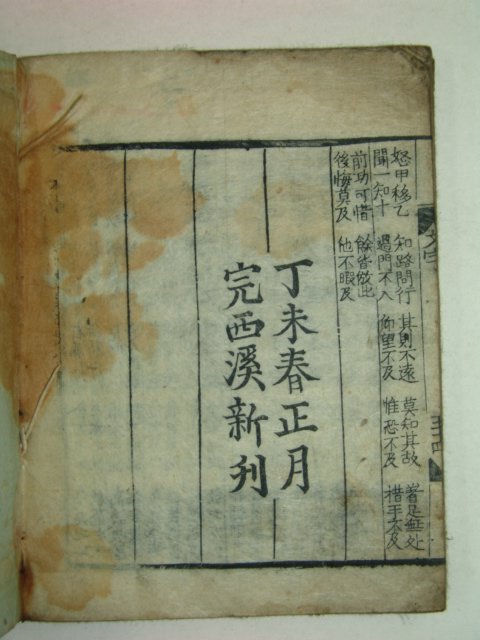 怒甲移乙 知路問行 其則不遠 莫知其故 著足無处
聞一知十 過門不入 仰望不及 惟恐不及 措手不及
前功可惜 餘皆放此
後悔莫及 他不暇及
丁未春正月
完西溪新刋